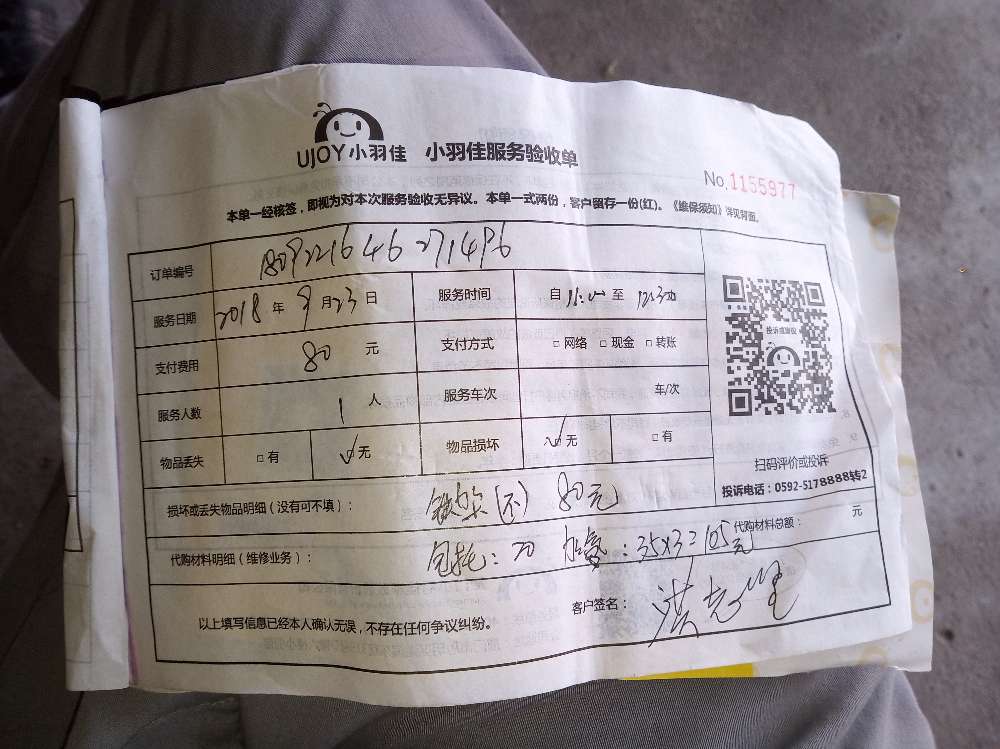 UJOY小羽佳 小羽佳服务验收单
No.1155977
本单一经核签，即视为对本次服务验收无异议。本单一式两份，客户留存一份(红)。《维保须知》详见背面。
订单编号
服务日期 2018 年 9 月 23 日 服务时间 自 11:00 至
支付费用 80 元 支付方式 □ 网络 □ 现金 □ 转账
服务人数 1 人 服务车次 车/次
物品丢失 □ 有 □ 无 物品损坏 □ 无 □ 有
投诉或验收
扫码评价或投诉
投诉电话：0592-5178888转2
损坏或丢失物品明细（没有可不填）： 80元
代购材料明细（维修业务）： 包托：70 加氨：35×3=105元 代购材料总额： 元
以上填写信息已经本人确认无误，不存在任何争议纠纷。 客户签名：